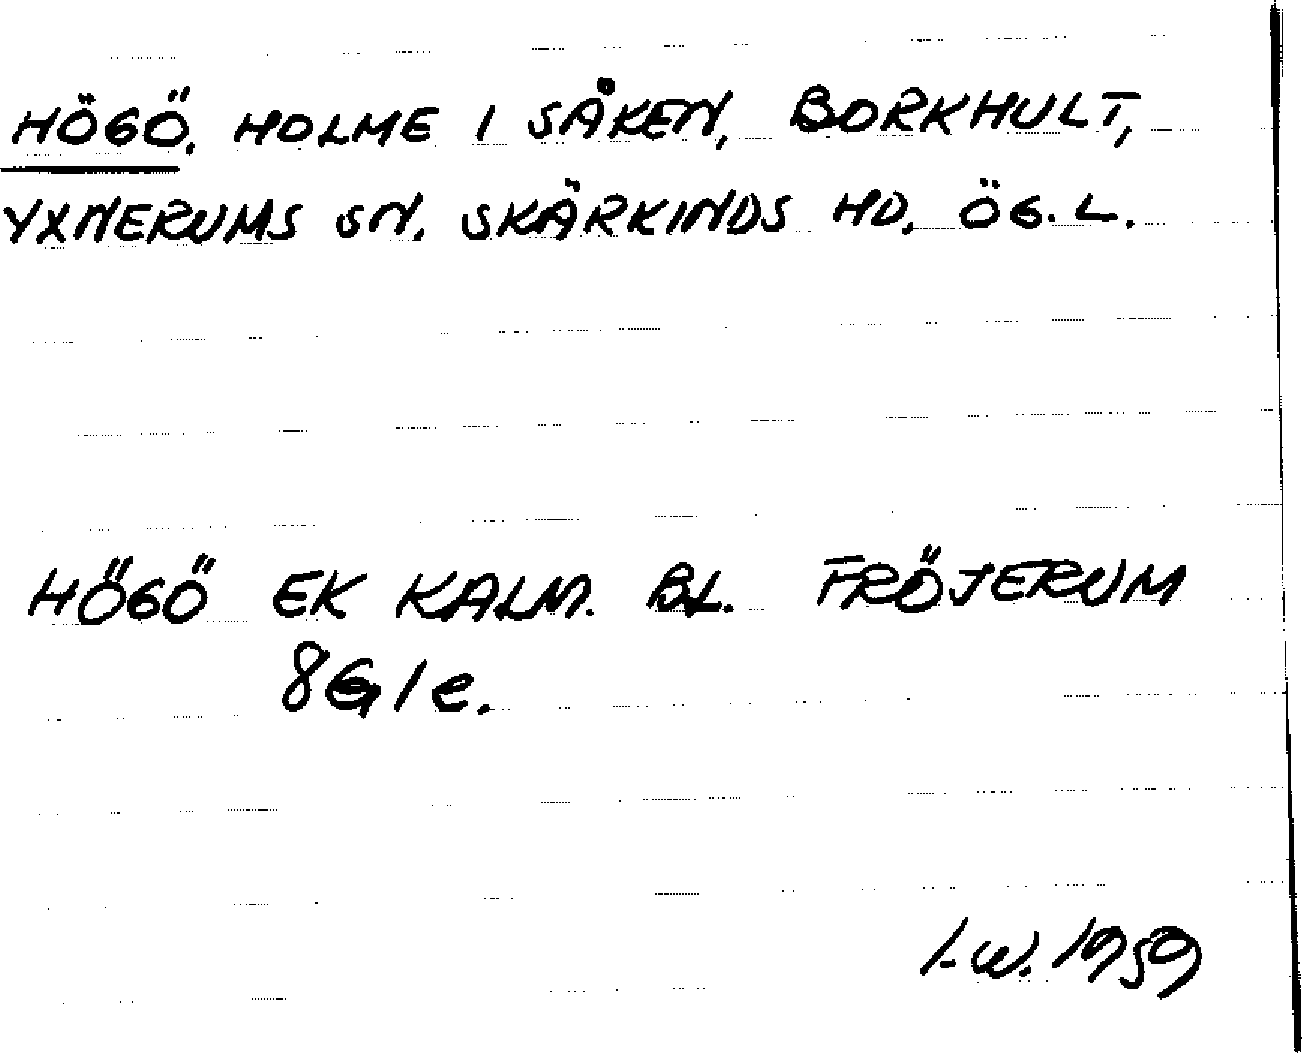 HÖGÖ. HOLME I SÅKEN, BORKHULT,
YXNERUMS SN. SKÄRKINDS HD. ÖG.L.
HÖGÖ EK KALM. BL. FRÖJERUM
8G1e.
I.W. 1959